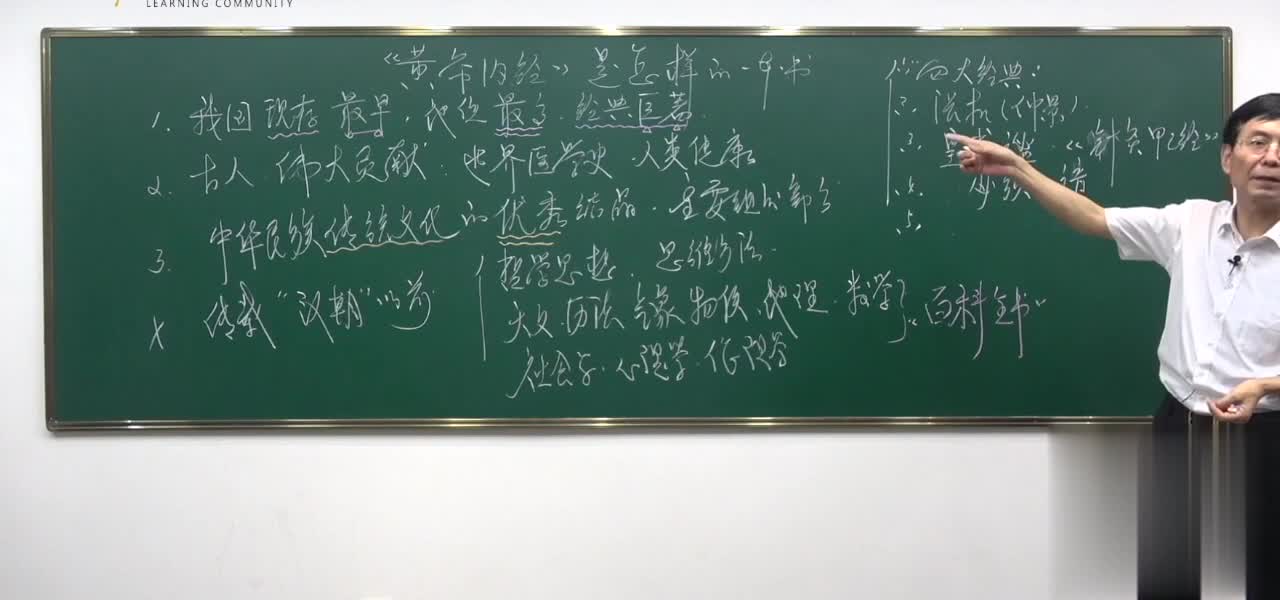 LEARNING COMMUNITY
《黄帝内经》是怎样的一部书
1. 我国现存最早，地位最高，经典医著.
2. 古人伟大贡献：世界医学史 人类健康
3. 中华民族传统文化的优秀结晶．重要组成部分
哲学思想． 思维方法．
天文．历法 气象 物候．地理．数学 "百科全书"
社会学．心理学．伦理学
传载"汉朝"以前
(1) 四大经典：
2. 法板(仲景)
3. 《针灸甲乙经》
4.
5.